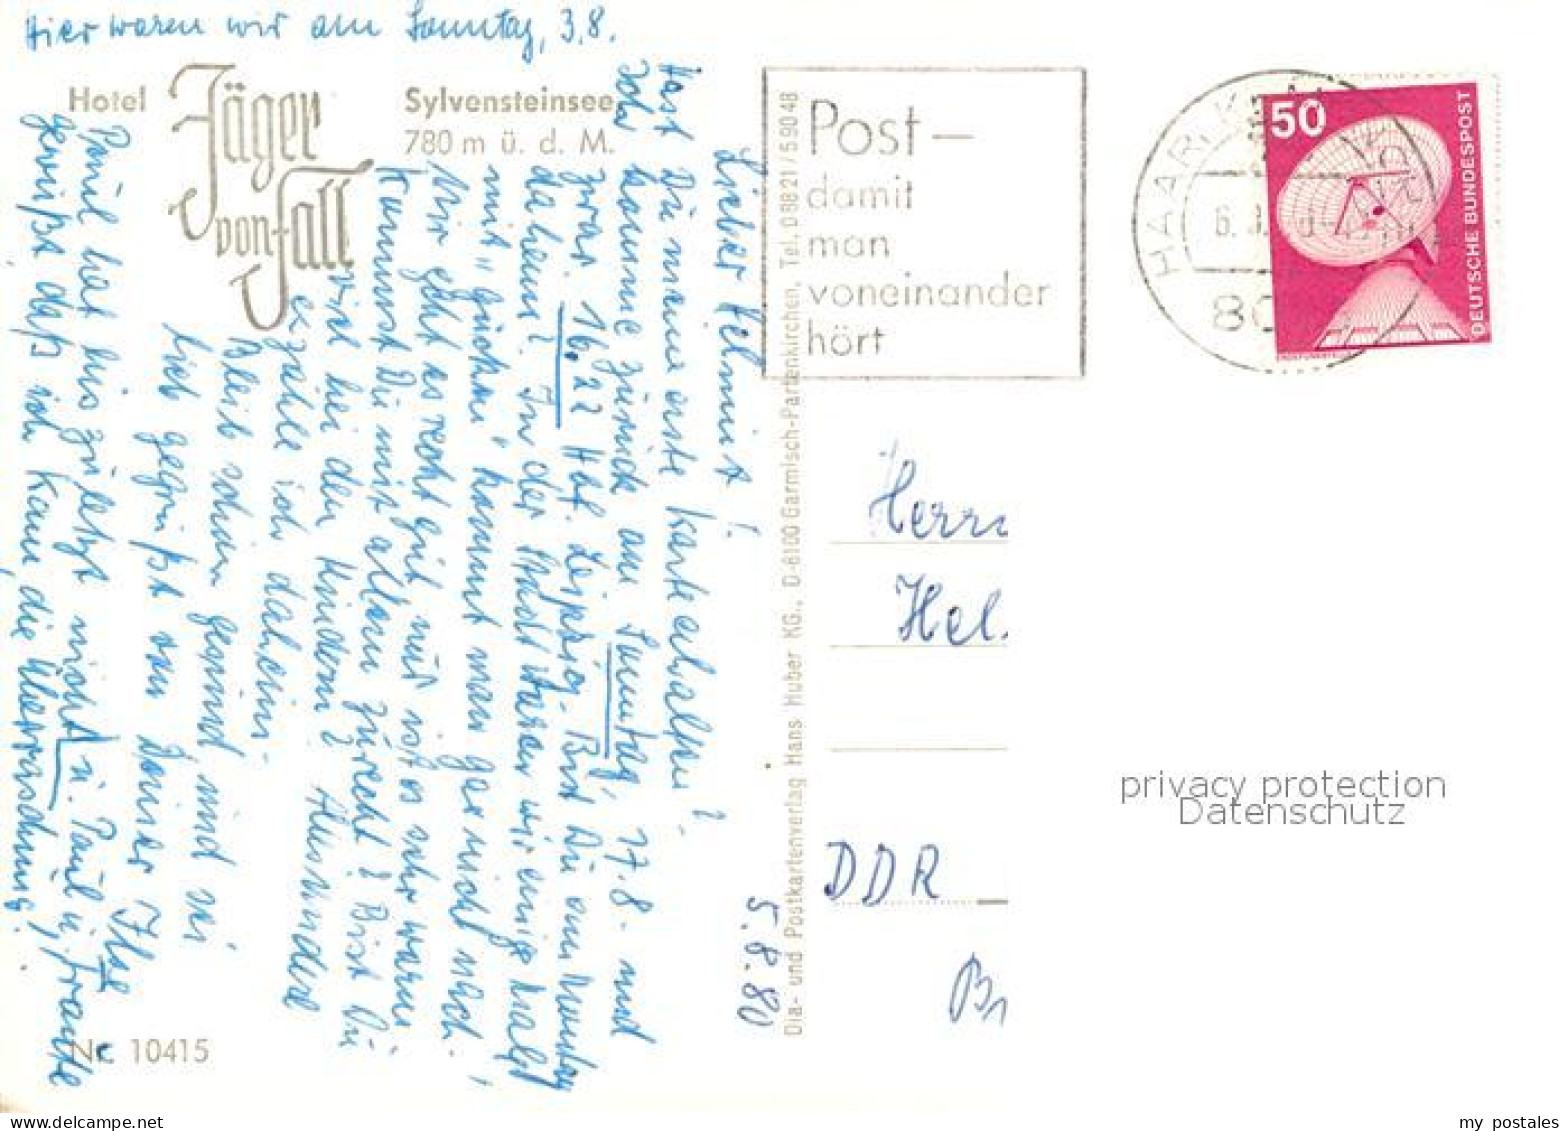 Hier waren wir am Sonntag, 3.8.
Hotel Jäger von Fall
Sylvensteinsee
780 m ü. d. M.
Lieber Helmut!
Hast Du meine erste Karte erhalten?
Ich komme zurück am Sonntag, 17.8. und
zwar 16.22 Hbf. Leipzig. Bist Du am Montag
daheim? In der Stadt waren wir einige Male
mit "gucken" kommt man gar nicht nach.
Mir geht es recht gut nur ist es sehr warm.
Kommst Du mit allem zurecht? Bist Du
viel bei den Kindern?
erzähle ich daheim.
Bleib schön gesund und sei
lieb gegrüßt von Deiner Ilse
Paul hat bis zuletzt nicht
gewußt daß ich kam, die Überraschung!
Nr. 10415
5.8.80
Dia- und Postkartenverlag Hans Huber KG., D-8100 Garmisch-Partenkirchen, Tel. 08821/59048
Post –
damit
man
voneinander
hört
HAAR, K
80
50
DEUTSCHE BUNDESPOST
Herrn
Hel.
DDR
privacy protection
Datenschutz
my postales